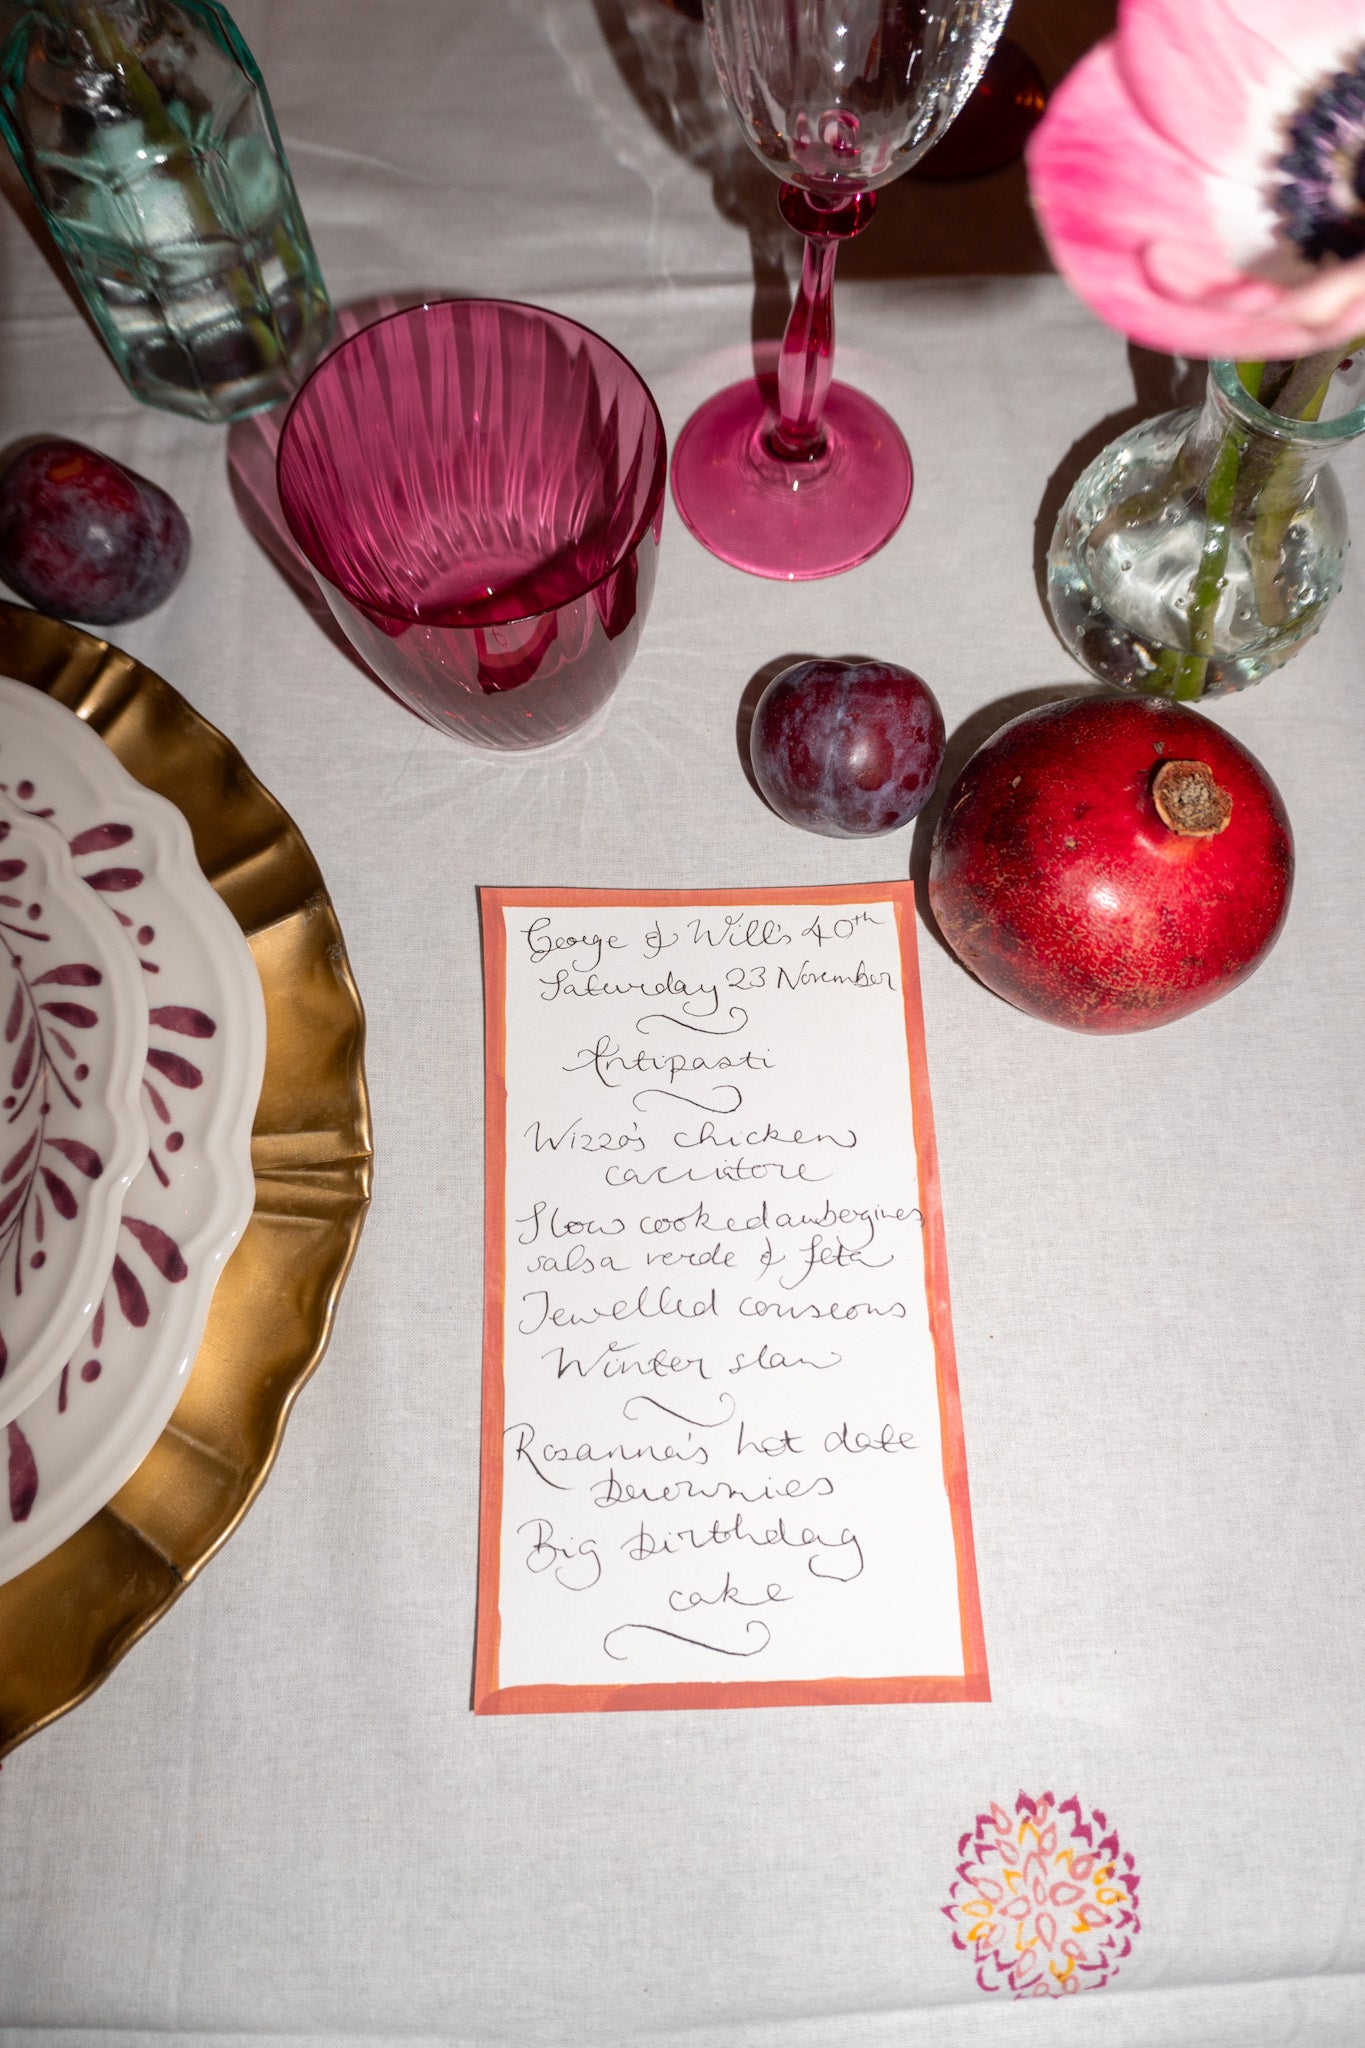 George & Will's 40th
Saturday 23 November
Antipasti
Wizzo's chicken
cacciatore
Slow cooked aubergines
salsa verde & feta
Jewelled couscous
Winter slaw
Rosanna's hot date
brownies
Big birthday
cake